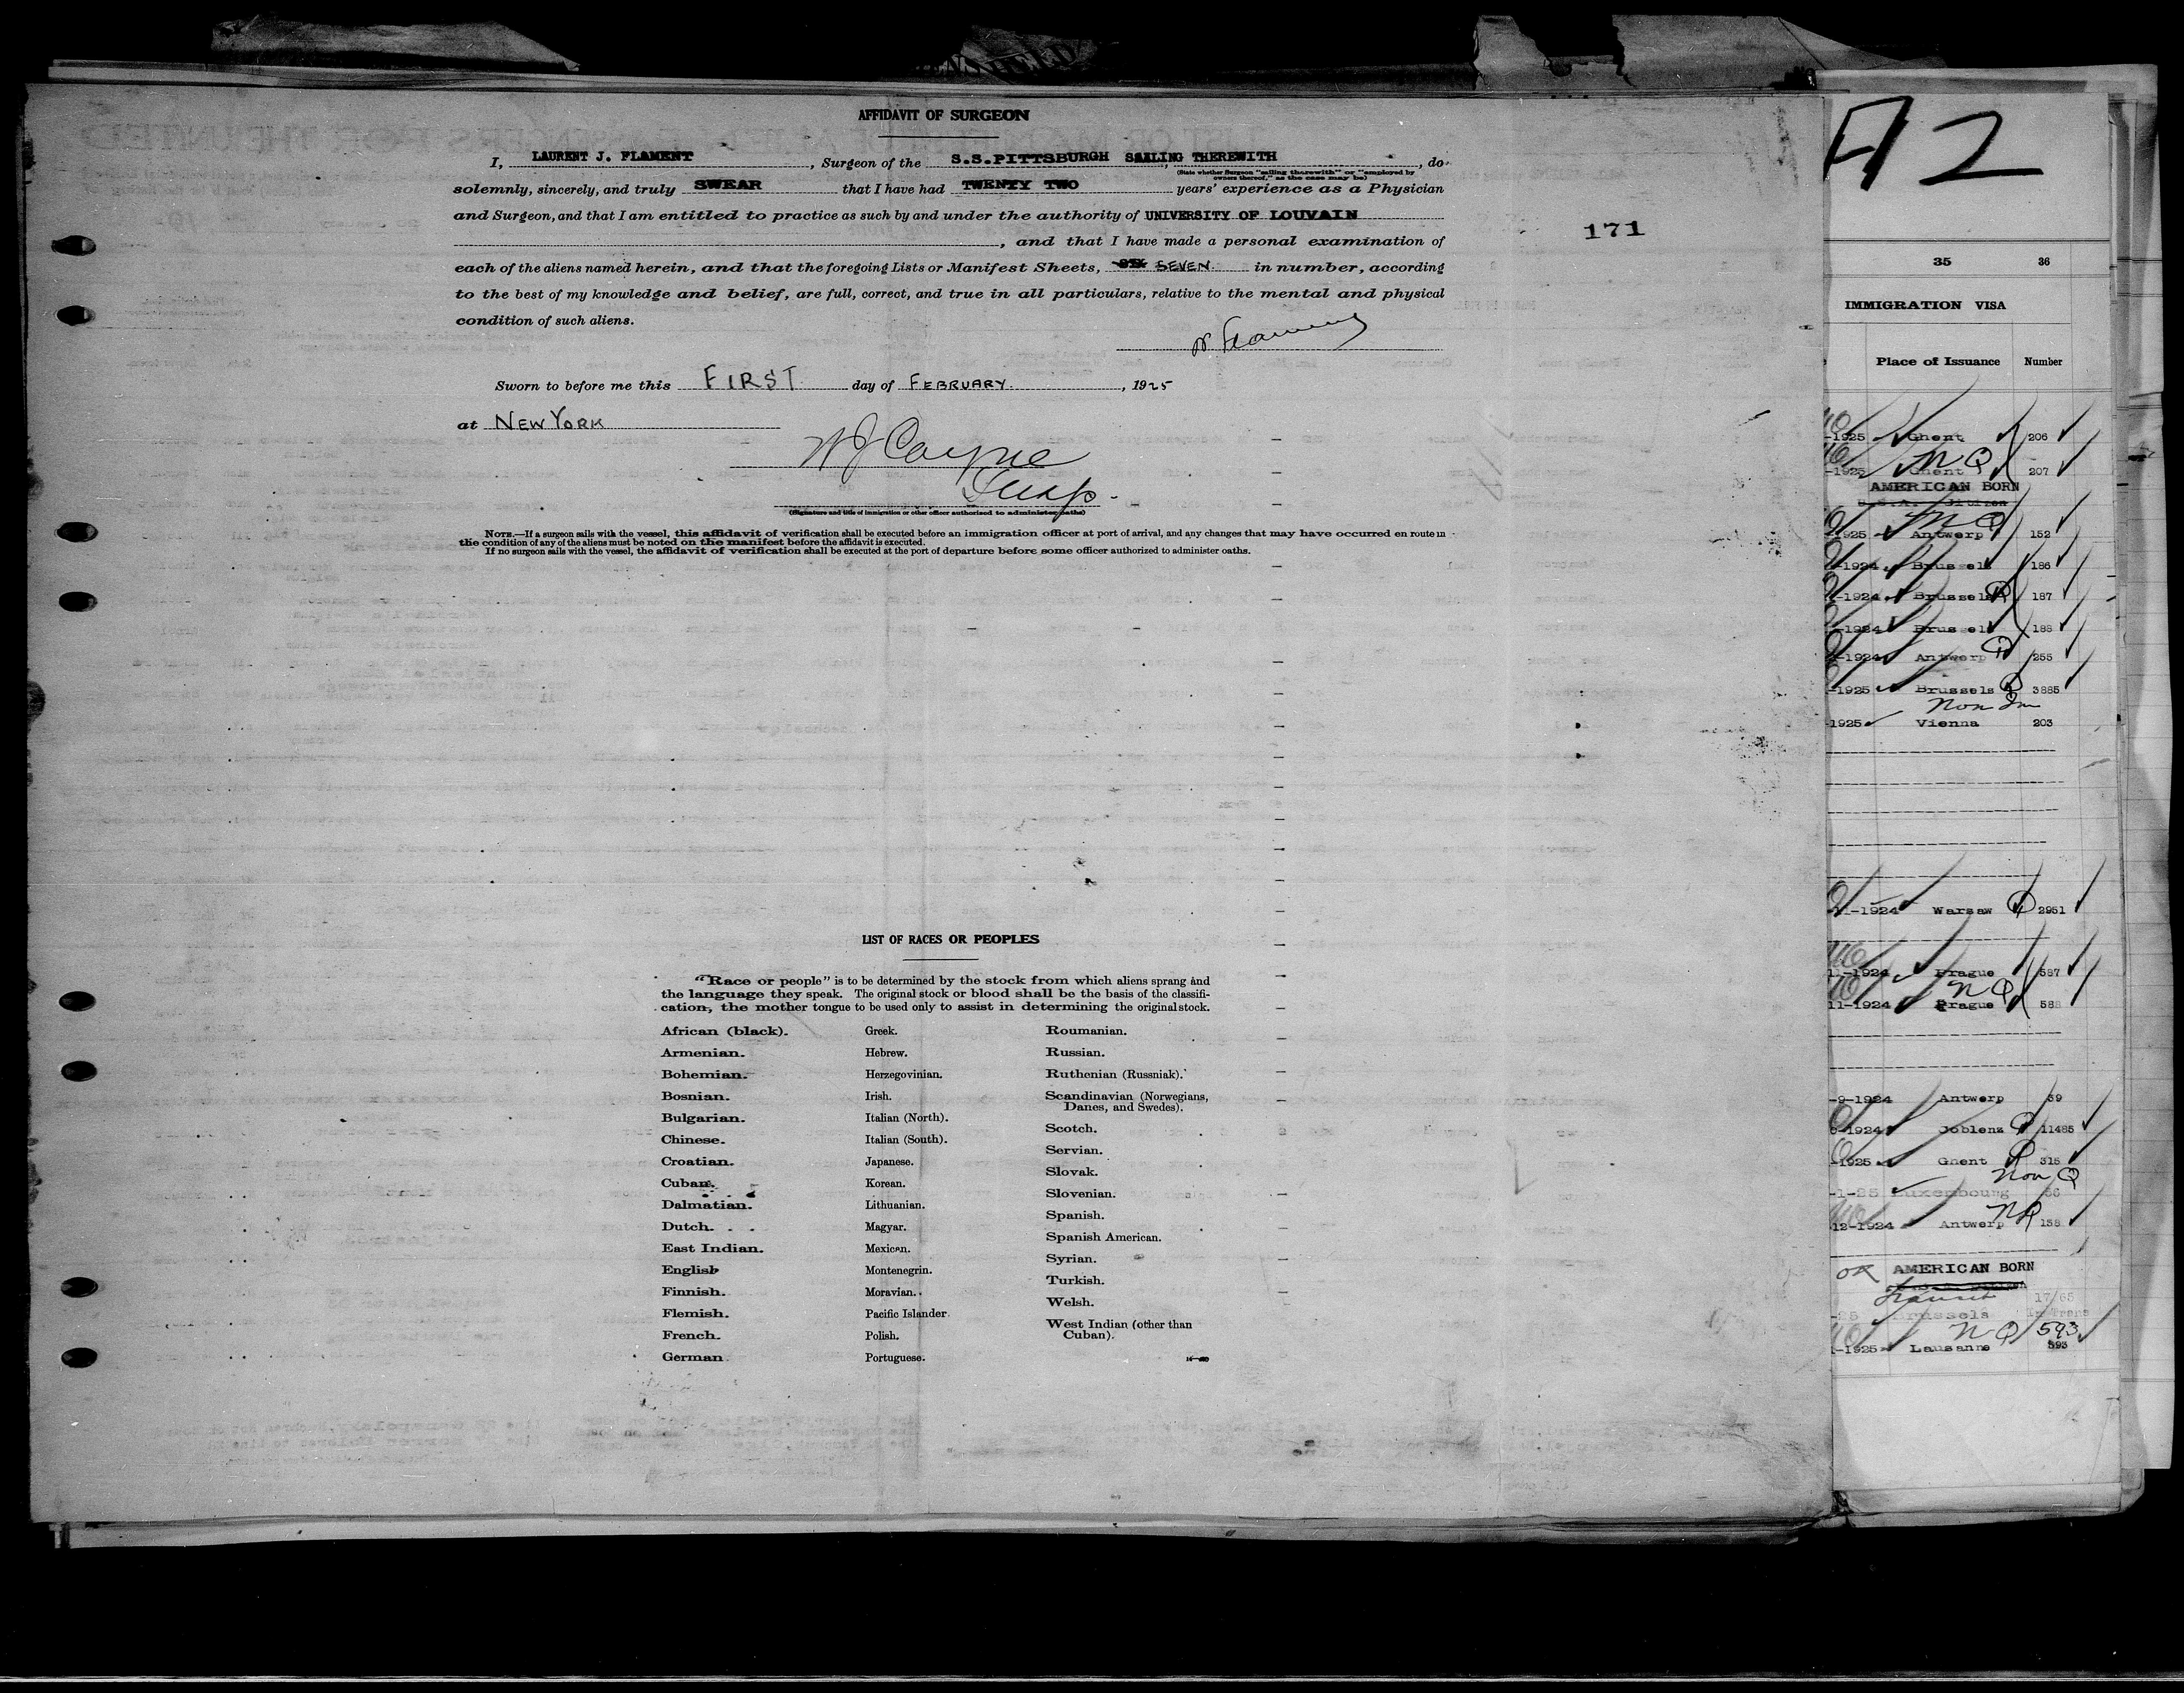 AFFIDAVIT OF SURGEON
I, LAURENT J. FLAMENT, Surgeon of the S.S.PITTSBURGH SAILING THEREWITH, do
(State whether Surgeon "sailing therewith" or "employed by
owners thereof," as the case may be)
solemnly, sincerely, and truly SWEAR that I have had TWENTY TWO years' experience as a Physician
and Surgeon, and that I am entitled to practice as such by and under the authority of UNIVERSITY OF LOUVAIN
, and that I have made a personal examination of
each of the aliens named herein, and that the foregoing Lists or Manifest Sheets, SEVEN in number, according
to the best of my knowledge and belief, are full, correct, and true in all particulars, relative to the mental and physical
condition of such aliens.
Sworn to before me this FIRST day of FEBRUARY, 1925
at NEW YORK
(Signature and title of immigration or other officer authorized to administer oaths)
NOTE.—If a surgeon sails with the vessel, this affidavit of verification shall be executed before an immigration officer at port of arrival, and any changes that may have occurred en route in
the condition of any of the aliens must be noted on the manifest before the affidavit is executed.
If no surgeon sails with the vessel, the affidavit of verification shall be executed at the port of departure before some officer authorized to administer oaths.
171
LIST OF RACES OR PEOPLES
"Race or people" is to be determined by the stock from which aliens sprang and
the language they speak. The original stock or blood shall be the basis of the classifi-
cation, the mother tongue to be used only to assist in determining the original stock.
African (black).
Armenian.
Bohemian.
Bosnian.
Bulgarian.
Chinese.
Croatian.
Cuban.
Dalmatian.
Dutch.
East Indian.
English
Finnish.
Flemish.
French.
German
Greek.
Hebrew.
Herzegovinian.
Irish.
Italian (North).
Italian (South).
Japanese.
Korean.
Lithuanian.
Magyar.
Mexican.
Montenegrin.
Moravian.
Pacific Islander.
Polish.
Portuguese.
Roumanian.
Russian.
Ruthenian (Russniak).
Scandinavian (Norwegians,
Danes, and Swedes).
Scotch.
Servian.
Slovak.
Slovenian.
Spanish.
Spanish American.
Syrian.
Turkish.
Welsh.
West Indian (other than
Cuban).
A2
35 36
IMMIGRATION VISA
Place of Issuance Number
-1925 Ghent 206
-1925 Ghent NQ 207
AMERICAN BORN
1925 Antwerp NQ 152
-1924 Brussels 186
-1924 Brussels 187
-1924 Brussels 188
-1924 Antwerp 255
-1925 Brussels 3885
Non Im
1925 Vienna 203
11-1924 Warsaw 2951
11-1924 Prague 587
NQ
11-1924 Prague 588
-9-1924 Antwerp 39
-1924 Coblenz 11485
-1925 Ghent 315
Non Q
-1-25 Luxembourg 56
NQ
12-1924 Antwerp 158
OK AMERICAN BORN
Transit 17/65
-25 Brussels In Trans
NQ 593
-1925 Lausanne 593